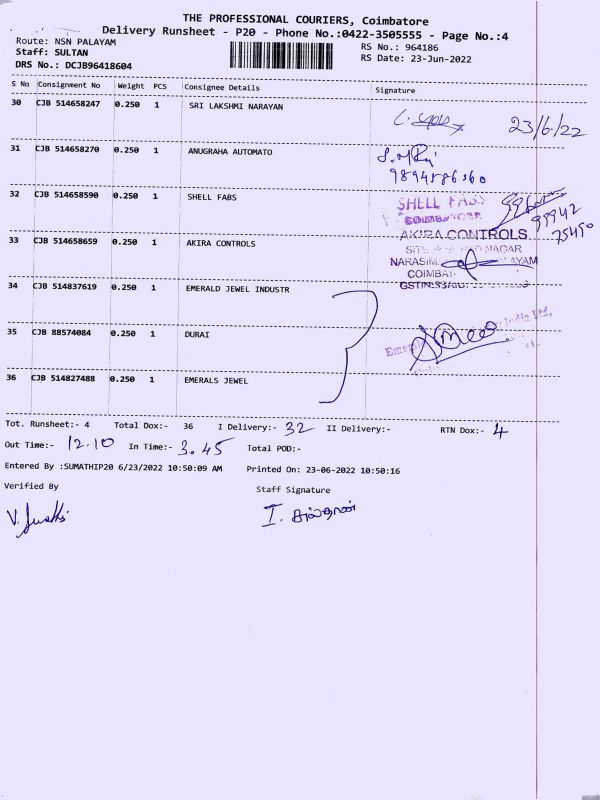 THE PROFESSIONAL COURIERS, Coimbatore
Delivery Runsheet - P20 - Phone No.:0422-3505555 - Page No.:4
Route: NSN PALAYAM
Staff: SULTAN
DRS No.: DCJB96418604
RS No.: 964186
RS Date: 23-Jun-2022
S No Consignment No Weight PCS Consignee Details Signature
30 CJB 514658247 0.250 1 SRI LAKSHMI NARAYAN
23/6/22
31 CJB 514658270 0.250 1 ANUGRAHA AUTOMATO
9894586360
32 CJB 514658590 0.250 1 SHELL FABS
SHELL FABS
99942
75450
33 CJB 514658659 0.250 1 AKIRA CONTROLS
AKIRA CONTROLS
34 CJB 514837619 0.250 1 EMERALD JEWEL INDUSTR
35 CJB 88574084 0.250 1 DURAI
India Ltd,
36 CJB 514827488 0.250 1 EMERALS JEWEL
Tot. Runsheet:- 4 Total Dox:- 36 I Delivery:- 32 II Delivery:- RTN Dox:- 4
Out Time:- 12.10 In Time:- 3.45 Total POD:-
Entered By :SUMATHIP20 6/23/2022 10:50:09 AM Printed On: 23-06-2022 10:50:16
Verified By Staff Signature